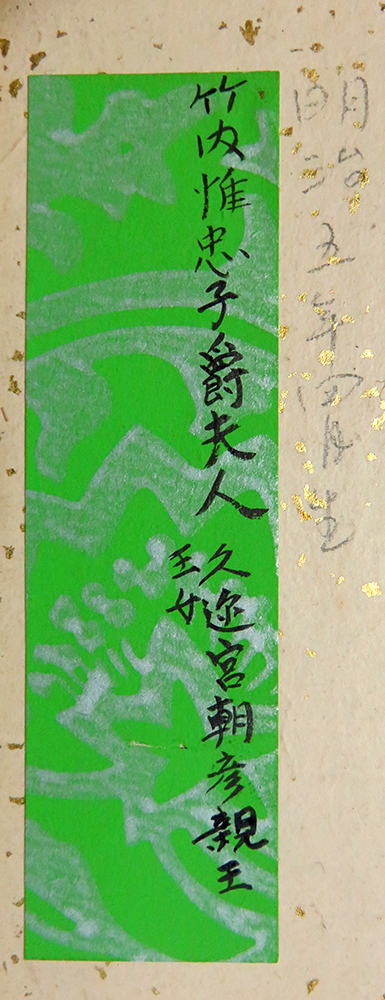 明治五年四月生
竹内惟忠子爵夫人
久邇宮朝彦親王
王女